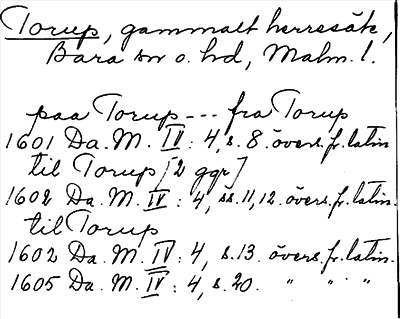 Torup, gammalt herresäte,
Bara sn o. hd, Malm. l.
paa Torup --- fra Torup
1601 Da. M. IV: 4, s. 8. övers. fr. latin
til Torup [2 ggr]
1602 Da. M. IV: 4, ss. 11, 12. övers. fr. latin.
til Torup
1602 Da. M. IV: 4, s. 13. övers. fr. latin.
1605 Da. M. IV: 4, s. 20. " " "